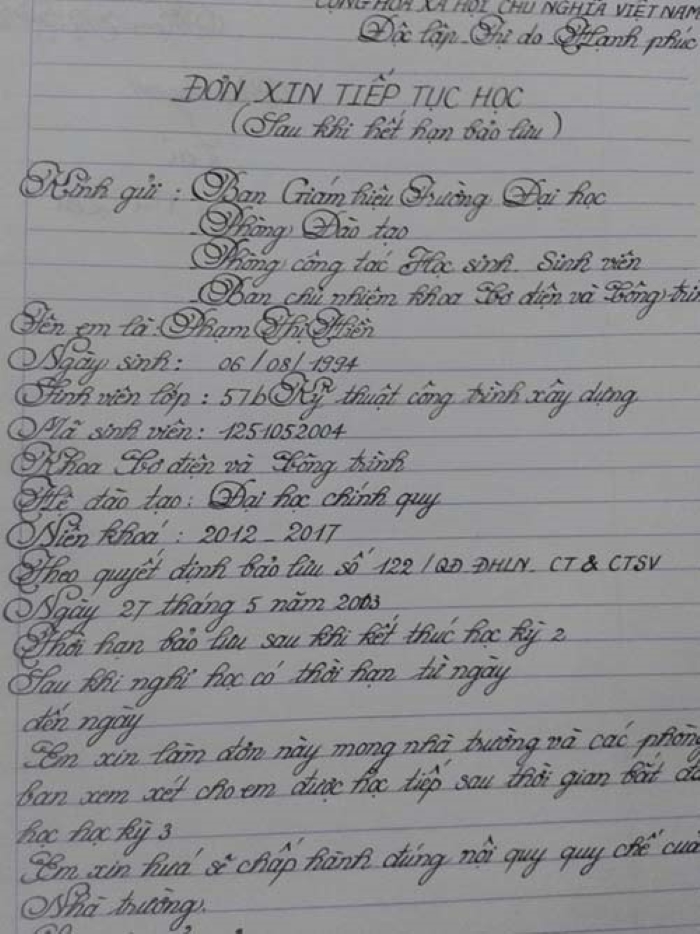 CỘNG HÒA XÃ HỘI CHỦ NGHĨA VIỆT NAM
Độc lập_Tự do_Hạnh phúc
ĐƠN XIN TIẾP TỤC HỌC
(Sau khi hết hạn bảo lưu)
Kính gửi : _Ban Giám hiệu Trường Đại học
_Phòng Đào tạo
_Phòng công tác Học sinh. Sinh viên
_Ban chủ nhiệm khoa Cơ điện và Công trìn
Tên em là: Phạm Thị Hiền
Ngày sinh : 06/08/1994
Sinh viên lớp : 57b Kỹ thuật công trình xây dựng
Mã sinh viên: 1251052004
Khoa Cơ điện và Công trình
Hệ đào tạo : Đại học chính quy
Niên khoá : 2012 _ 2017
Theo quyết định bảo lưu số 122/QĐ ĐHLN_ CT & CTSV
Ngày 27 tháng 5 năm 2003
Thời hạn bảo lưu sau khi kết thúc học kỳ 2
Sau khi nghỉ học có thời hạn từ ngày
đến ngày
Em xin làm đơn này mong nhà trường và các phòng
ban xem xét cho em được học tiếp sau thời gian bắt đầ
học học kỳ 3
Em xin hưá sẽ chấp hành đúng nội quy quy chế cuả
Nhà trường.